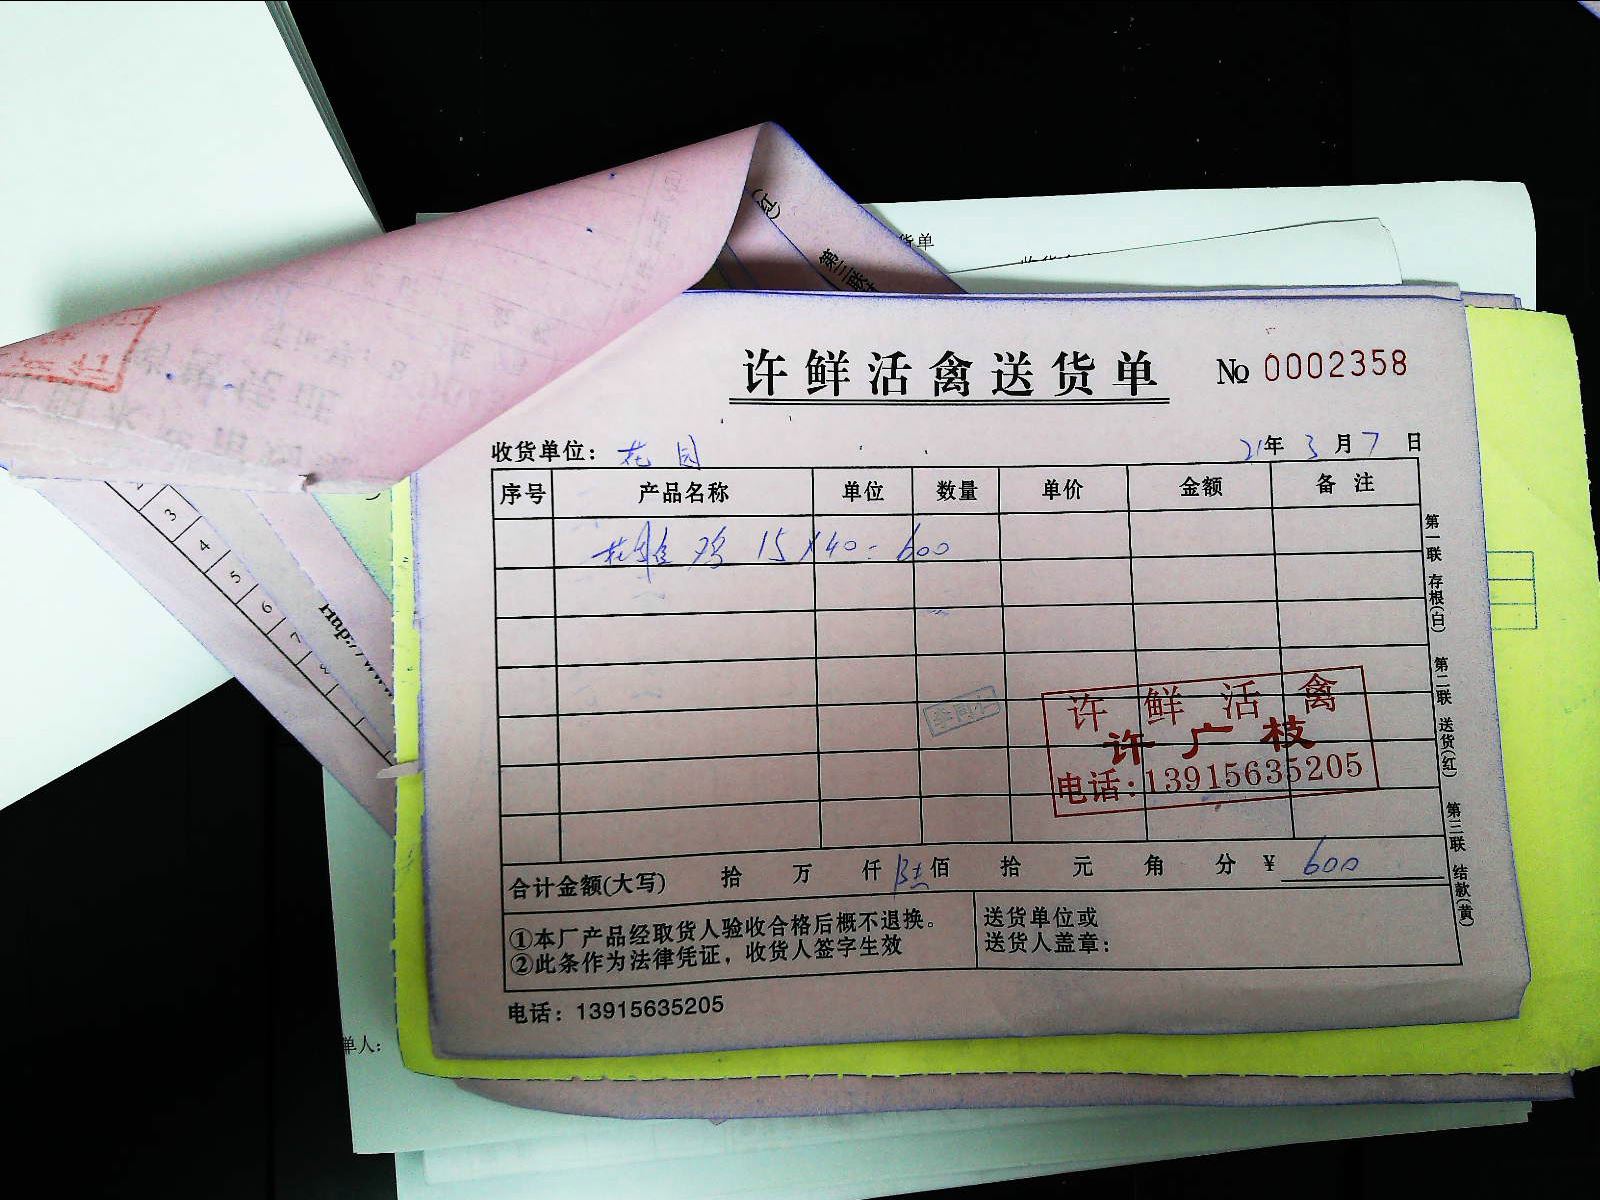 货单
(红)
第三联
许鲜活禽送货单 № 0002358
收货单位：花园 21年3月7日
序号 产品名称 单位 数量 单价 金额 备注
鸡 15×40=600
第一联 存根(白) 第二联 送货(红) 第三联 结款(黄)
李同仁
许鲜活禽
许广枝
电话:13915635205
合计金额(大写) 拾 万 仟 陆佰 拾 元 角 分 ¥ 600
①本厂产品经取货人验收合格后概不退换。
②此条作为法律凭证，收货人签字生效
送货单位或
送货人盖章：
电话：13915635205
3
4
5
6
7
8
Http://www
单人：